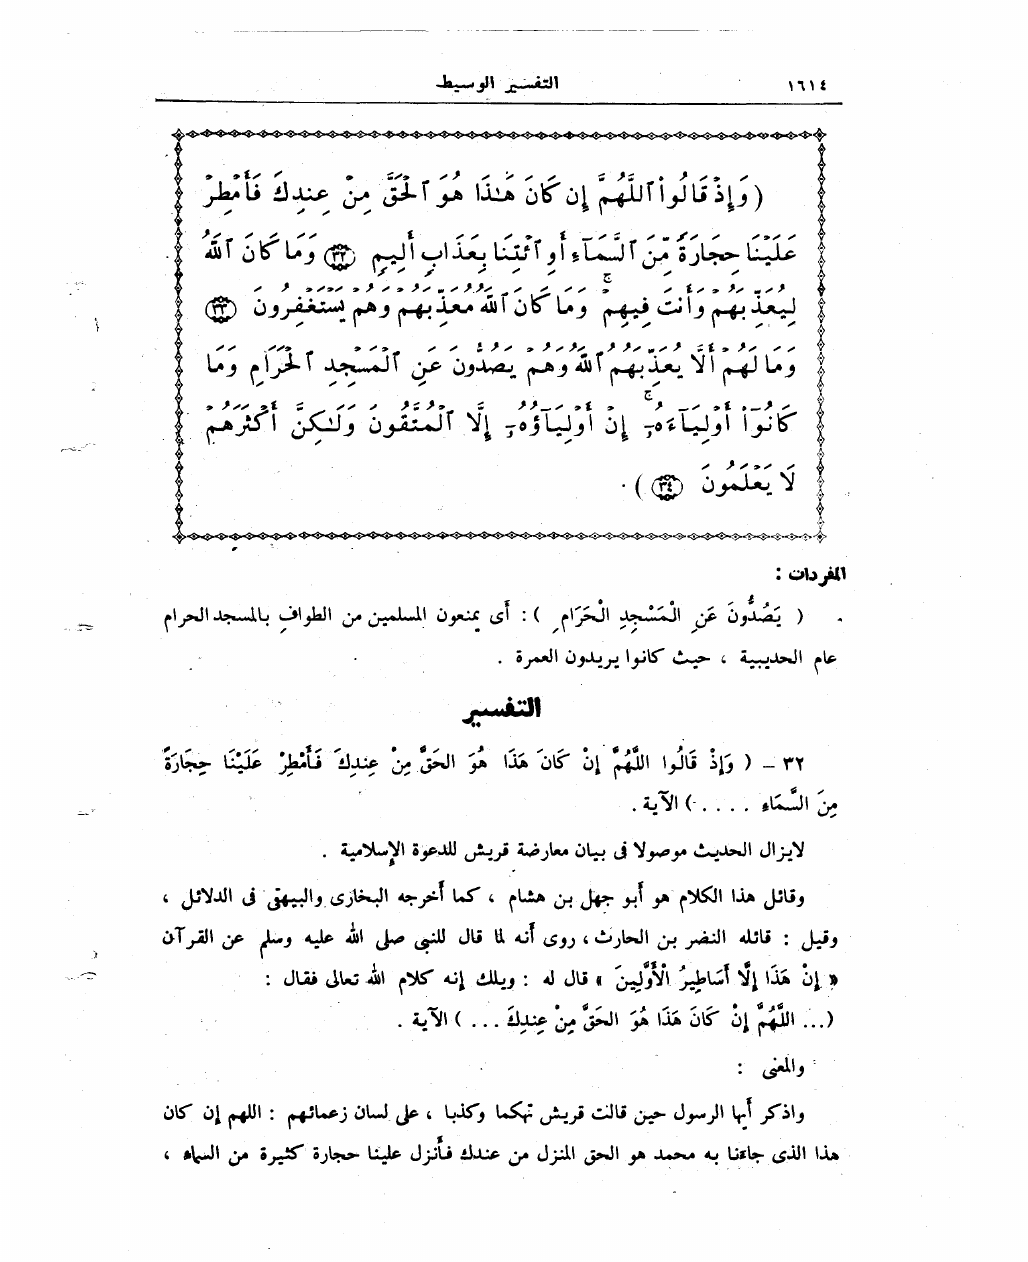 ١٦١٤ التفسير الوسيط
( وَإِذْ قَالُوا۟ ٱللَّهُمَّ إِن كَانَ هَـٰذَا هُوَ ٱلْحَقَّ مِنْ عِندِكَ فَأَمْطِرْ
عَلَيْنَا حِجَارَةً مِّنَ ٱلسَّمَآءِ أَوِ ٱئْتِنَا بِعَذَابٍ أَلِيمٍ ٣٢ وَمَا كَانَ ٱللَّهُ
لِيُعَذِّبَهُمْ وَأَنتَ فِيهِمْ ۚ وَمَا كَانَ ٱللَّهُ مُعَذِّبَهُمْ وَهُمْ يَسْتَغْفِرُونَ ٣٣
وَمَا لَهُمْ أَلَّا يُعَذِّبَهُمُ ٱللَّهُ وَهُمْ يَصُدُّونَ عَنِ ٱلْمَسْجِدِ ٱلْحَرَامِ وَمَا
كَانُوٓا۟ أَوْلِيَآءَهُۥٓ ۚ إِنْ أَوْلِيَآؤُهُۥٓ إِلَّا ٱلْمُتَّقُونَ وَلَـٰكِنَّ أَكْثَرَهُمْ
لَا يَعْلَمُونَ ٣٤ ) .
المفردات :
( يَصُدُّونَ عَنِ الْمَسْجِدِ الْحَرَامِ ) : أى يمنعون المسلمين من الطواف بالمسجد الحرام
عام الحديبية ، حيث كانوا يريدون العمرة .
التفسير
٣٢ – ( وَإِذْ قَالُوا اللَّهُمَّ إِنْ كَانَ هَذَا هُوَ الحَقَّ مِنْ عِندِكَ فَأَمْطِرْ عَلَيْنَا حِجَارَةً
مِنَ السَّمَاءِ . . . . ) الآية .
لايزال الحديث موصولا فى بيان معارضة قريش للدعوة الإسلامية .
وقائل هذا الكلام هو أبو جهل بن هشام ، كما أخرجه البخارى والبيهقى فى الدلائل ،
وقيل : قائله النضر بن الحارث ، روى أنه لما قال للنبى صلى الله عليه وسلم عن القرآن
« إِنْ هَذَا إِلَّا أَسَاطِيرُ الْأَوَّلِينَ » قال له : ويلك إنه كلام الله تعالى فقال :
( ... اللَّهُمَّ إِنْ كَانَ هَذَا هُوَ الحَقَّ مِنْ عِندِكَ ... ) الآية .
والمعنى :
واذكر أيها الرسول حين قالت قريش تهكما وكذبا ، على لسان زعمائهم : اللهم إن كان
هذا الذى جاءنا به محمد هو الحق المنزل من عندك فأنزل علينا حجارة كثيرة من السماء ،